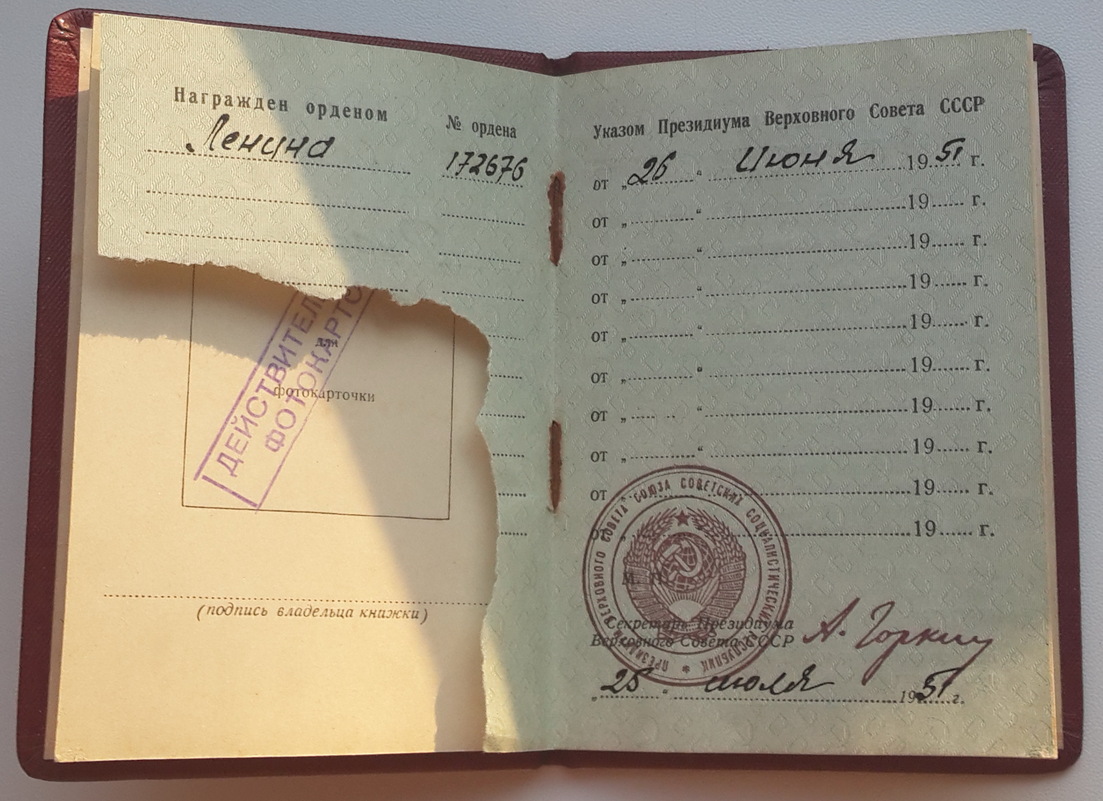 Награжден орденом
№ ордена
Ленина
172676
ДЕЙСТВИТЕЛ
ФОТОКАРТО
для
фотокарточки
(подпись владельца книжки)
Указом Президиума Верховного Совета СССР
от „26“ Июня 1951 г.
от „ “ 19 г.
от „ “ 19 г.
от „ “ 19 г.
от „ “ 19 г.
от „ “ 19 г.
от „ “ 19 г.
от „ “ 19 г.
от „ “ 19 г.
от „ “ 19 г.
ПРЕЗИДИУМ ВЕРХОВНОГО СОВЕТА СОЮЗА СОВЕТСКИХ СОЦИАЛИСТИЧЕСКИХ РЕСПУБЛИК
М. П.
Секретарь Президиума
Верховного Совета СССР
А. Горкин
„25“ июля 1951 г.